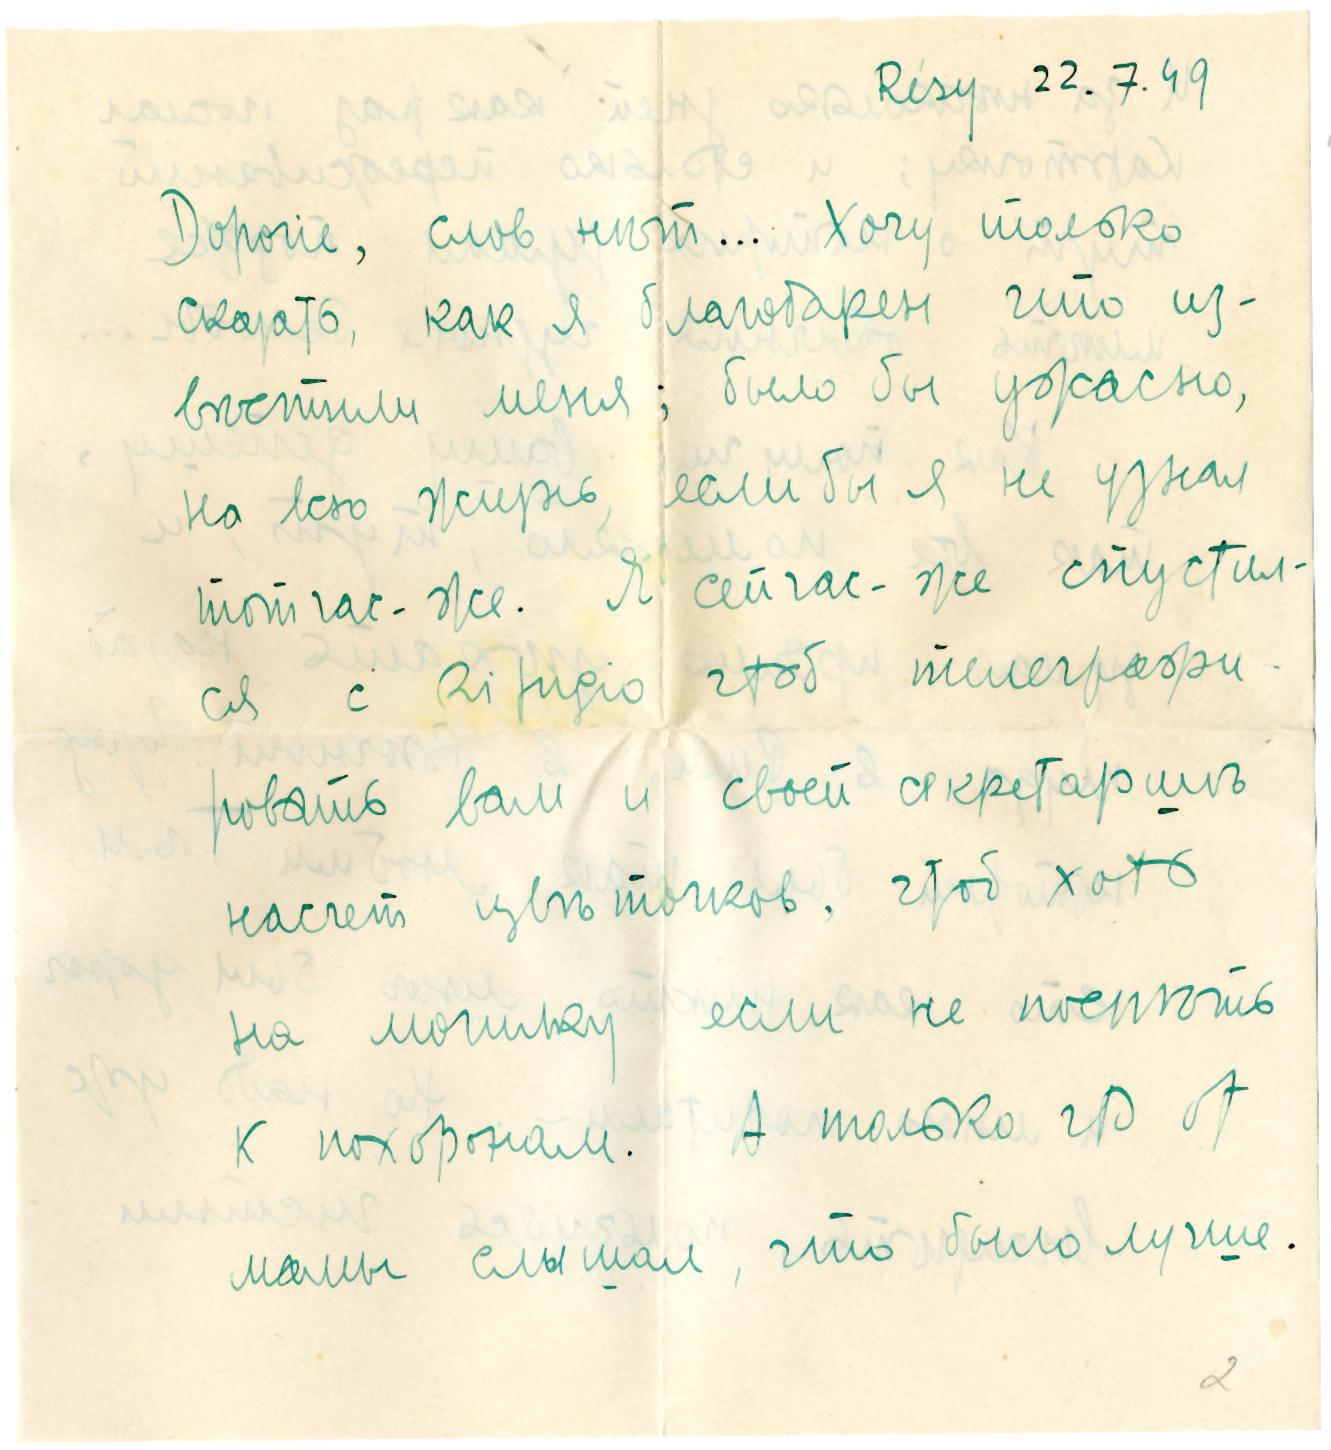 Résy 22.7.49
Дорогіе, слов нѣт... Хочу только
сказать, как я благодарен что из-
вѣстили меня; было бы ужасно,
на всю жизнь, если бы я не узнал
тотчас-же. Я сейчас-же спустил-
ся с Rifugio чтоб телеграфи-
ровать вам и своей секретаршѣ
насчет цвѣточков, чтоб хоть
на могилку если не поспѣть
к похоронам. А только что от
мамы слышал, что было лучше.
2